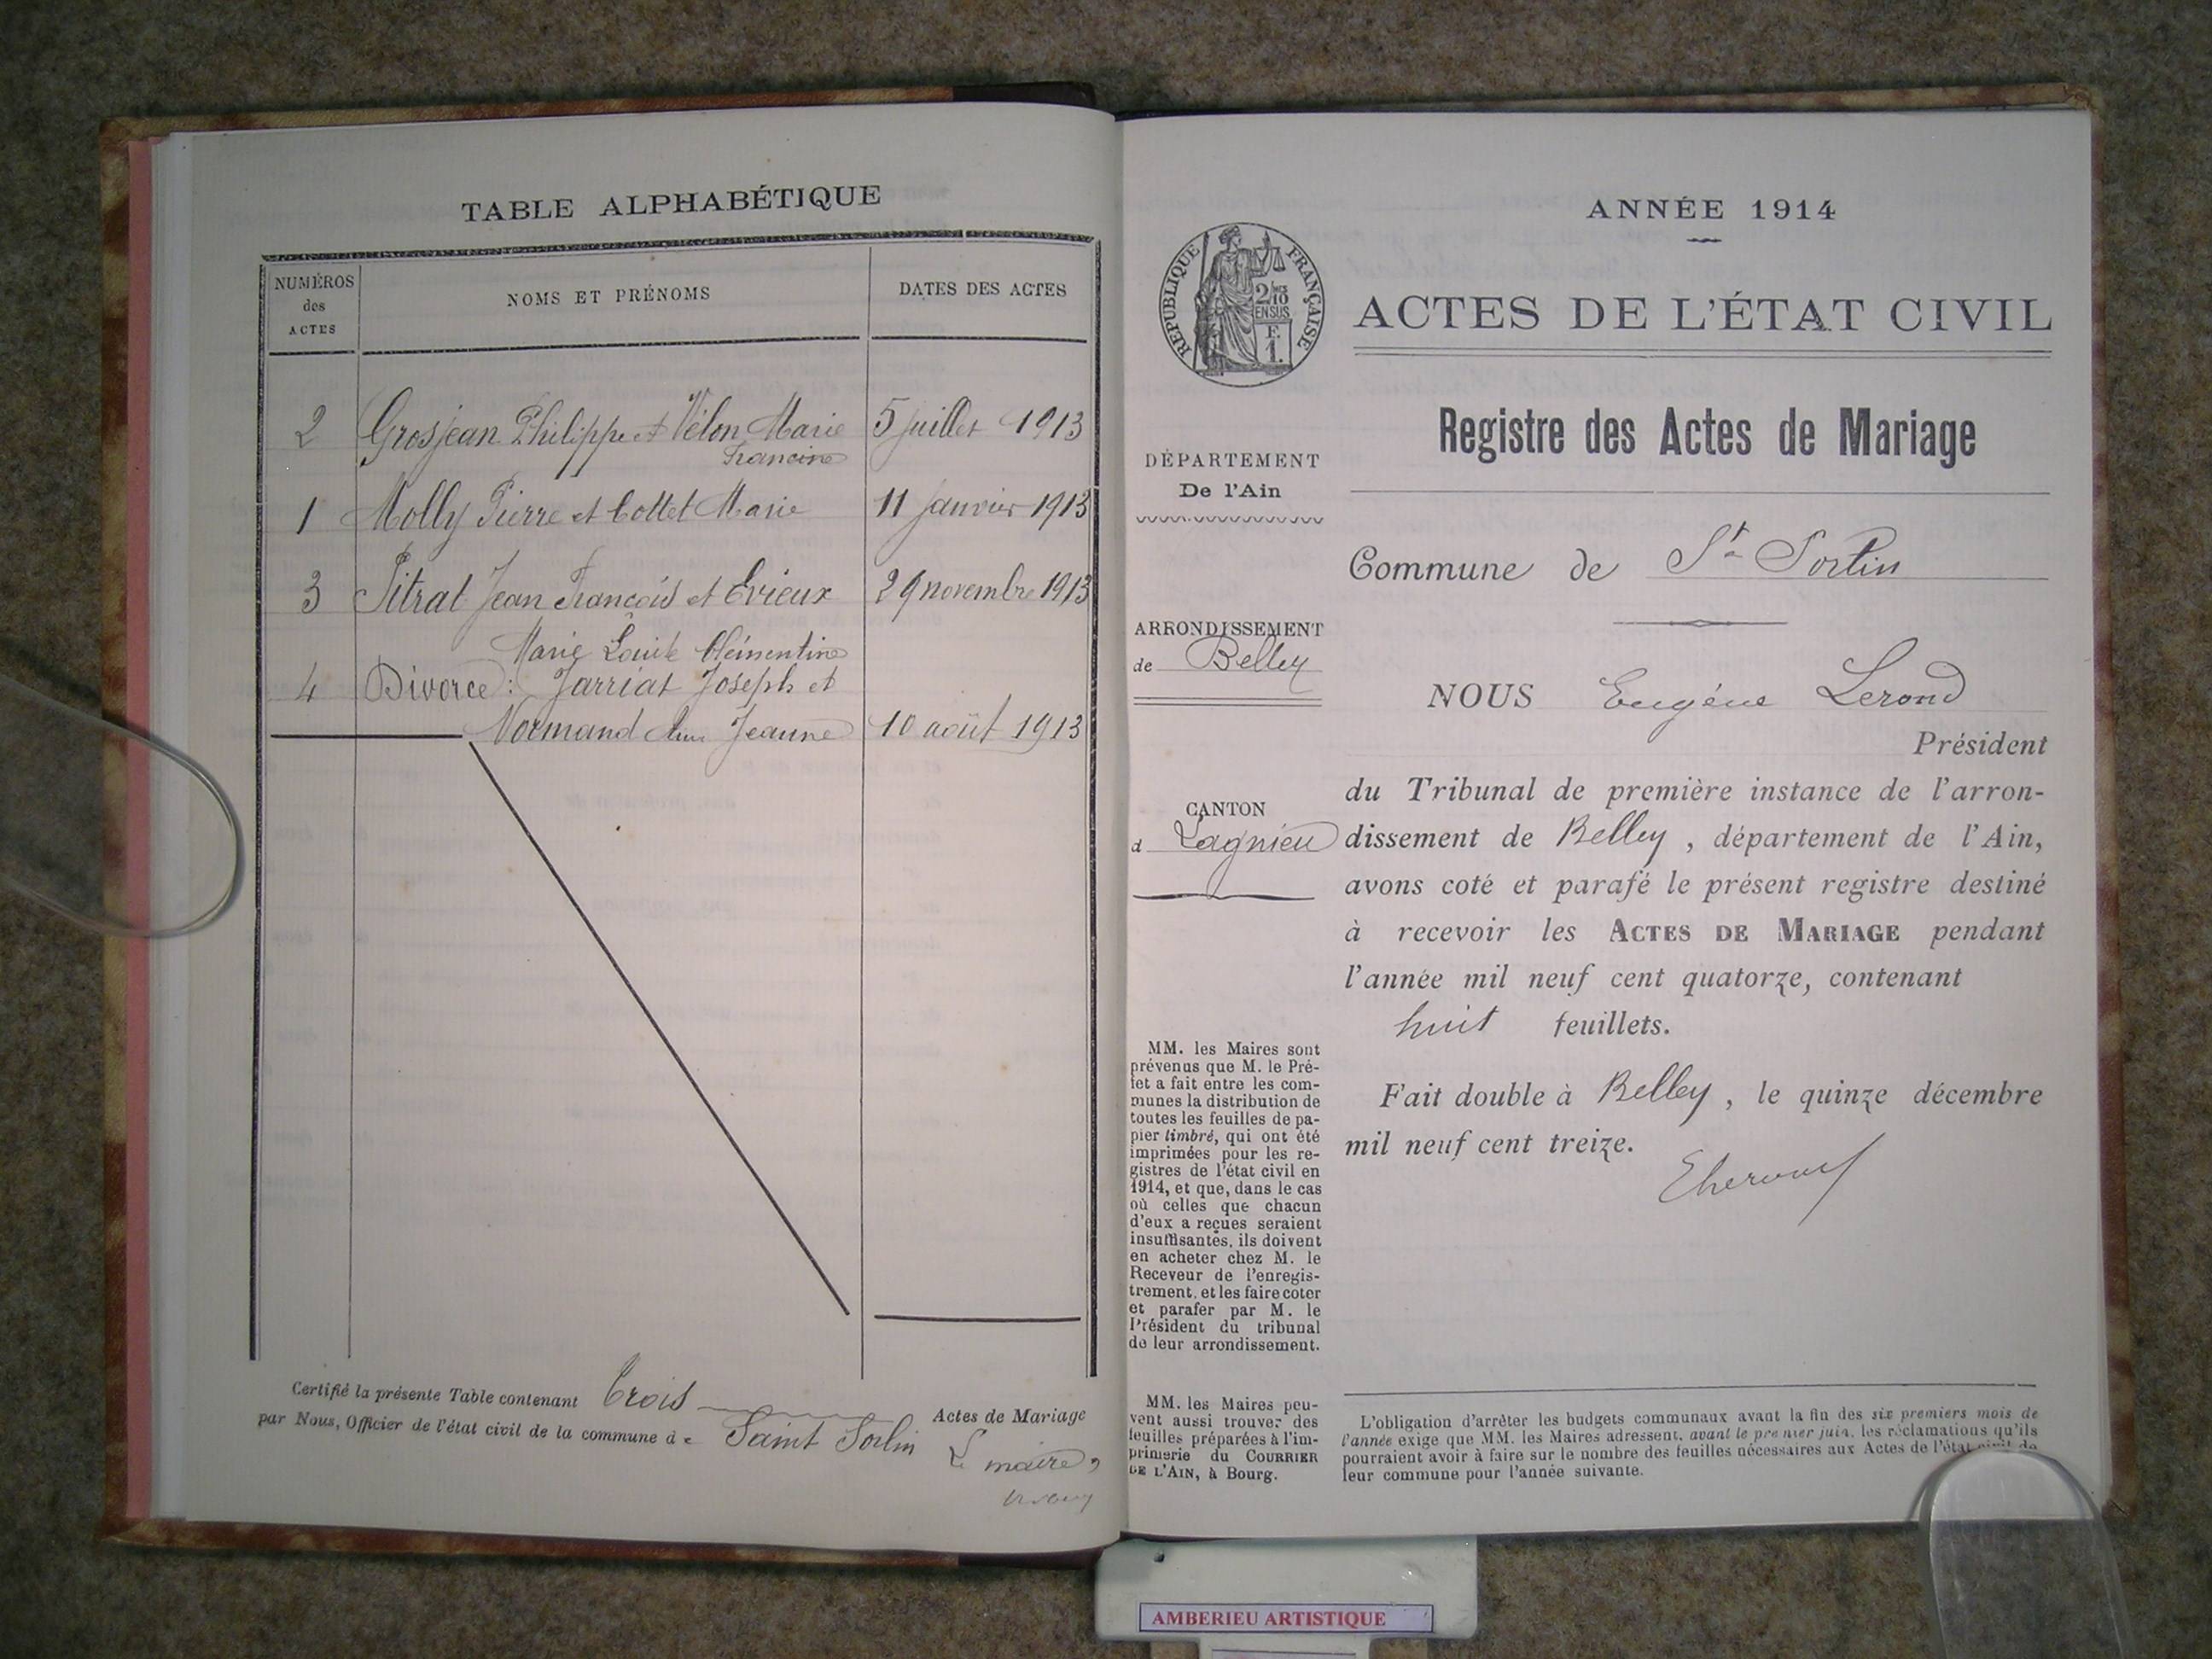 TABLE ALPHABÉTIQUE
NUMÉROS des ACTES
NOMS ET PRÉNOMS
DATES DES ACTES
2 Grosjean Philippe et Vélon Marie 5 juillet 1913
Francine
1 Molly Pierre et Cottet Marie 11 janvier 1913
3 Pitrat Jean François et Evieux 29 novembre 1913
Marie Louise Clémentine
4 Divorce : Jarriat Joseph et
Normand Jeanne 10 août 1913
Certifié la présente Table contenant Trois Actes de Mariage
par Nous, Officier de l'état civil de la commune de Saint Sorlin
Le maire,
ANNÉE 1914
RÉPUBLIQUE FRANÇAISE
2/10
EN SUS
F.
1.
ACTES DE L'ÉTAT CIVIL
Registre des Actes de Mariage
DÉPARTEMENT
De l'Ain
ARRONDISSEMENT
de Belley
CANTON
d Lagnieu
MM. les Maires sont
prévenus que M. le Pré-
fet a fait entre les com-
munes la distribution de
toutes les feuilles de pa-
pier timbré, qui ont été
imprimées pour les re-
gistres de l'état civil en
1914, et que, dans le cas
où celles que chacun
d'eux a reçues seraient
insuffisantes, ils doivent
en acheter chez M. le
Receveur de l'enregis-
trement, et les faire coter
et parafer par M. le
Président du tribunal
de leur arrondissement.
MM. les Maires peu-
vent aussi trouver des
feuilles préparées à l'im-
primerie du COURRIER
DE L'AIN, à Bourg.
Commune de St Sorlin
NOUS Eugène Lerond
Président
du Tribunal de première instance de l'arron-
dissement de Belley, département de l'Ain,
avons coté et parafé le présent registre destiné
à recevoir les ACTES DE MARIAGE pendant
l'année mil neuf cent quatorze, contenant
huit feuillets.
Fait double à Belley, le quinze décembre
mil neuf cent treize.
L'obligation d'arrêter les budgets communaux avant la fin des six premiers mois de
l'année exige que MM. les Maires adressent, avant le premier juin, les réclamations qu'ils
pourraient avoir à faire sur le nombre des feuilles nécessaires aux Actes de l'état civil de
leur commune pour l'année suivante.
AMBERIEU ARTISTIQUE